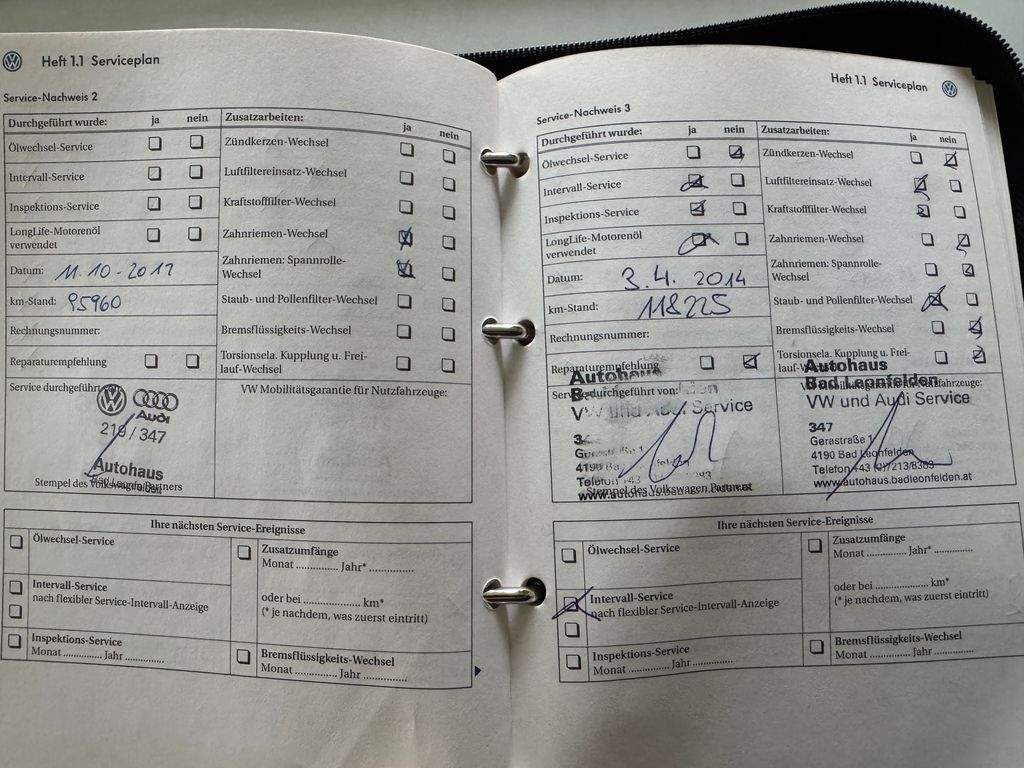 Heft 1.1 Serviceplan
Service-Nachweis 2
Durchgeführt wurde: ja nein
Ölwechsel-Service
Intervall-Service
Inspektions-Service
LongLife-Motorenöl
verwendet
Datum: 11.10-2012
km-Stand: 95960
Rechnungsnummer:
Reparaturempfehlung
Service durchgeführt
Audi
219/347
Autohaus
Stempel des Volkswagen Partners
Zusatzarbeiten: ja nein
Zündkerzen-Wechsel
Luftfiltereinsatz-Wechsel
Kraftstofffilter-Wechsel
Zahnriemen-Wechsel
Zahnriemen: Spannrolle-
Wechsel
Staub- und Pollenfilter-Wechsel
Bremsflüssigkeits-Wechsel
Torsionsela. Kupplung u. Frei-
lauf-Wechsel
VW Mobilitätsgarantie für Nutzfahrzeuge:
Ihre nächsten Service-Ereignisse
Ölwechsel-Service
Intervall-Service
nach flexibler Service-Intervall-Anzeige
Inspektions-Service
Monat .............. Jahr ..............
Zusatzumfänge
Monat .............. Jahr* ..............
oder bei .................... km*
(* je nachdem, was zuerst eintritt)
Bremsflüssigkeits-Wechsel
Monat .............. Jahr ..............
Heft 1.1 Serviceplan
Service-Nachweis 3
Durchgeführt wurde: ja nein
Ölwechsel-Service
Intervall-Service
Inspektions-Service
LongLife-Motorenöl
verwendet
Datum: 3.4. 2014
km-Stand: 118225
Rechnungsnummer:
Reparaturempfehlung
Service durchgeführt von:
Autohaus
VW und Audi Service
4190 Bad
Telefon +43
Stempel des Volkswagen Partners
Zusatzarbeiten: ja nein
Zündkerzen-Wechsel
Luftfiltereinsatz-Wechsel
Kraftstofffilter-Wechsel
Zahnriemen-Wechsel
Zahnriemen: Spannrolle-
Wechsel
Staub- und Pollenfilter-Wechsel
Bremsflüssigkeits-Wechsel
Torsionsela. Kupplung u. Frei-
lauf-Wechsel
Autohaus
Bad Leonfelden
VW und Audi Service
347
Gerastraße 1
4190 Bad Leonfelden
Telefon +43 (0)7213/8383
www.autohaus.badleonfelden.at
Ihre nächsten Service-Ereignisse
Ölwechsel-Service
Intervall-Service
nach flexibler Service-Intervall-Anzeige
Inspektions-Service
Monat .............. Jahr ..............
Zusatzumfänge
Monat .............. Jahr* ..............
oder bei .................... km*
(* je nachdem, was zuerst eintritt)
Bremsflüssigkeits-Wechsel
Monat .............. Jahr ..............